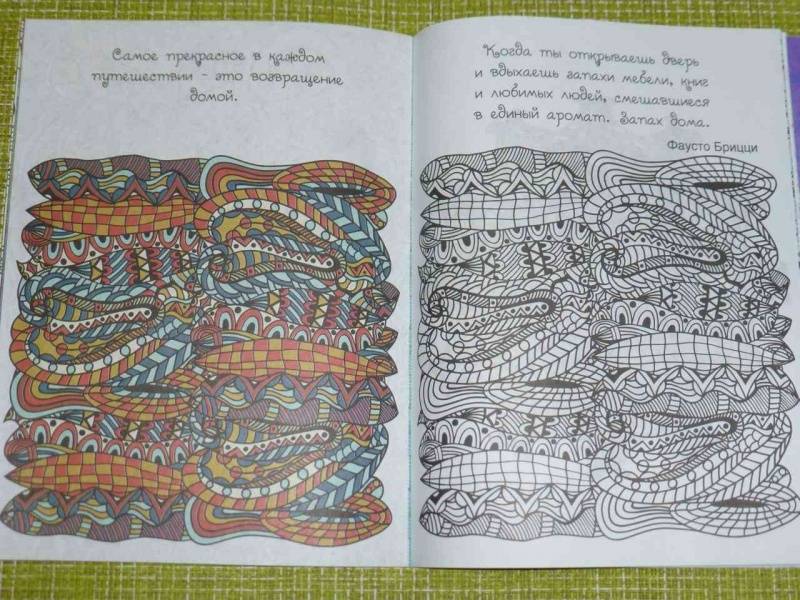 Самое прекрасное в каждом
путешествии - это возвращение
домой.
Когда ты открываешь дверь
и вдыхаешь запахи мебели, книг
и любимых людей, смешавшиеся
в единый аромат. Запах дома.
Фаусто Брицци